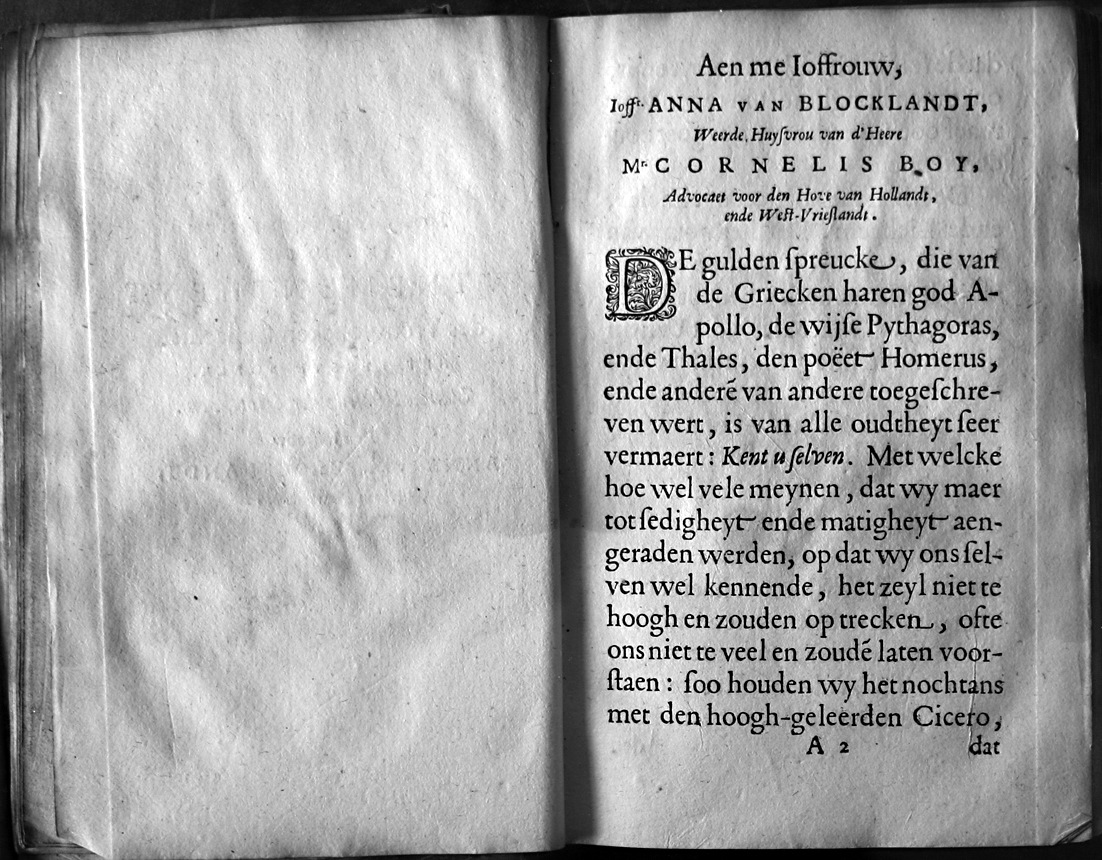 Aen me Ioffrouw,
Ioffr. ANNA VAN BLOCKLANDT,
Weerde, Huyſvrou van d'Heere
Mr. CORNELIS BOY,
Advocaet voor den Hove van Hollandt,
ende Weſt-Vrieſlandt.
DE gulden ſpreucke, die van
de Griecken haren god A-
pollo, de wijſe Pythagoras,
ende Thales, den poëet Homerus,
ende anderẽ van andere toegeſchre-
ven wert, is van alle oudtheyt ſeer
vermaert: Kent u ſelven. Met welcke
hoe wel vele meynen, dat wy maer
tot ſedigheyt ende matigheyt aen-
geraden werden, op dat wy ons ſel-
ven wel kennende, het zeyl niet te
hoogh en zouden op trecken, ofte
ons niet te veel en zoudẽ laten voor-
ſtaen: ſoo houden wy het nochtans
met den hoogh-geleerden Cicero,
A 2 dat